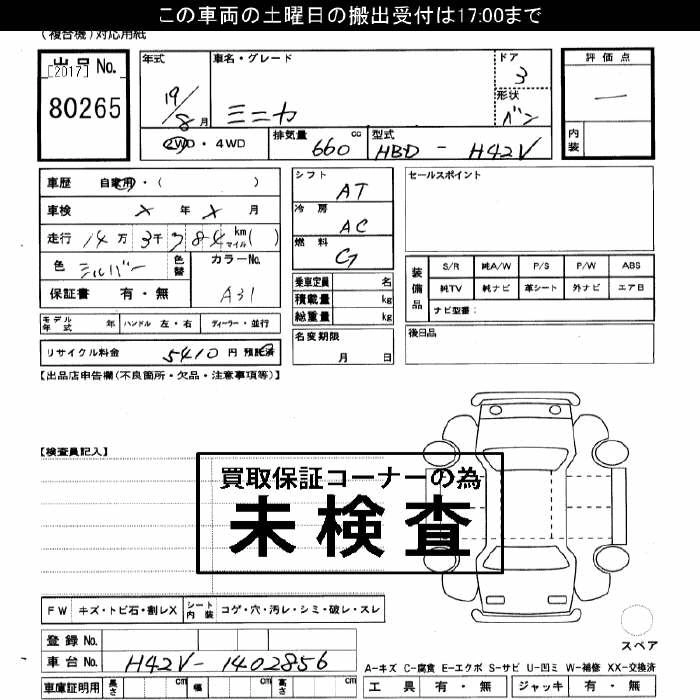 この車両の土曜日の搬出受付は17:00まで
(複合機)対応用紙
出品No.
[2017]
80265
年式
19/8月
車名・グレード
ミニカ
ドア
3
形状
バン
評価点
―
内装
2WD・4WD
排気量 660 cc
型式 HBD - H42V
車歴 自家用・( )
車検 X 年 X 月
走行 14万3千784 km マイル( )
色 シルバー
色替
カラーNo.
A31
保証書 有・無
シフト
AT
冷房
AC
燃料
G
乗車定員 名
積載量 kg
総重量 kg
セールスポイント
装備品
S/R 純A/W P/S P/W ABS
純TV 純ナビ 革シート 外ナビ エアB
ナビ型番:
モデル年式 年 ハンドル 左・右 ディーラー・並行
名変期限
月 日
後日品
リサイクル料金 5410円 預託済
【出品店申告欄(不良箇所・欠品・注意事項等)】
【検査員記入】
買取保証コーナーの為
未検査
FW キズ・トビ石・割レX シート内装 コゲ・穴・汚レ・シミ・破レ・スレ
登録No.
車台No. H42V-1402856
スペア
A-キズ C-腐食 E-エクボ S-サビ U-凹ミ W-補修 XX-交換済
車庫証明用 長さ cm 幅 cm 高さ cm
工具 有・無 ジャッキ 有・無